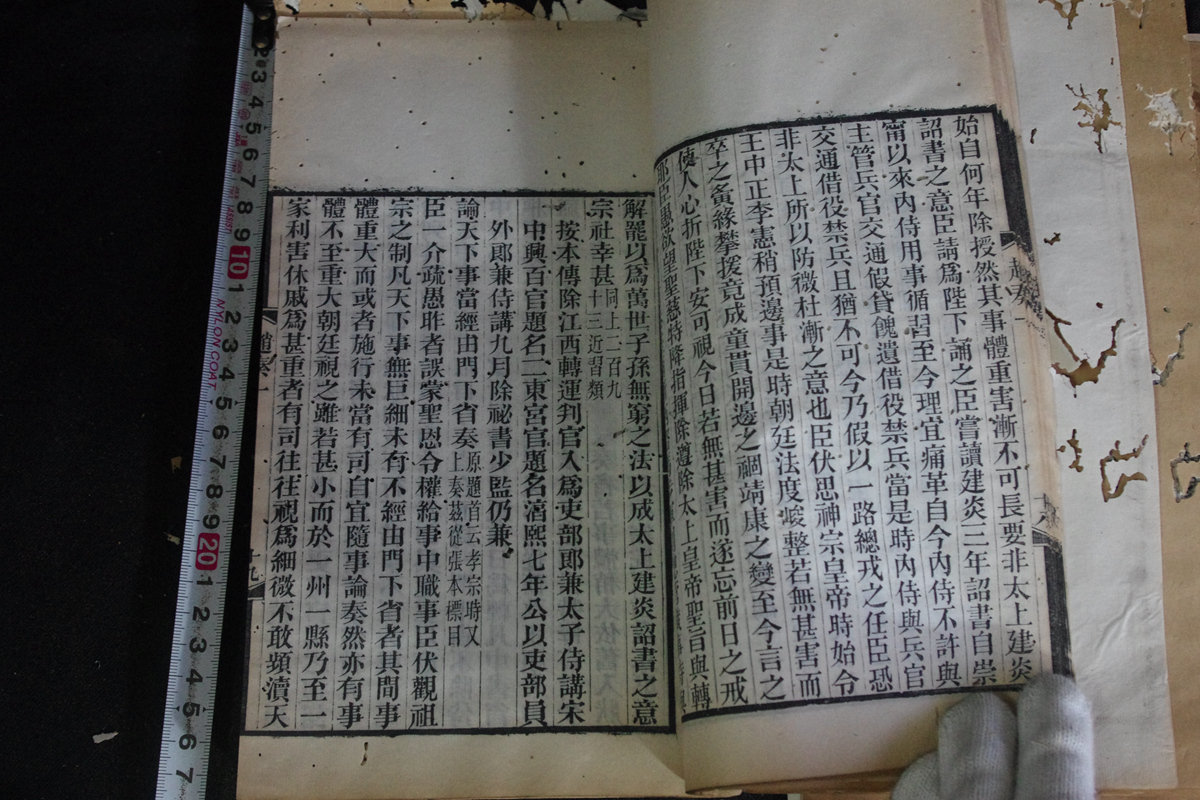 始自何年除授然其事體重害漸不可長要非太上建炎
詔書之意臣請爲陛下誦之臣嘗讀建炎三年詔書自崇
甯以來內侍用事循習至今理宜痛革自今內侍不許與
主管兵官交通假貸餽遺借役禁兵當是時內侍與兵官
交通借役禁兵且猶不可今乃假以一路總戎之任臣恐
非太上所以防微杜漸之意也臣伏思神宗皇帝時始令
王中正李憲稍預邊事是時朝廷法度峻整若無甚害而
卒之夤緣攀援竟成童貫開邊之禍靖康之變至今言之
使人心折陛下安可視今日若無甚害而遂忘前日之戒
臣愚欲望聖慈特降指揮除遵太上皇帝聖旨與轉
解罷以爲萬世子孫無窮之法以成太上建炎詔書之意
宗社幸甚同上二百九十三近習類
按本傳除江西轉運判官入爲吏部郎兼太子侍講宋
中興百官題名東宮官題名湻熙七年公以吏部員
外郎兼侍講九月除祕書少監仍兼
論天下事當經由門下省奏原題首云孝宗時又上奏茲從張本標目
臣一介疏愚昨者誤蒙聖恩令權給事中職事臣伏觀祖
宗之制凡天下事無巨細未有不經由門下省者其間事
體重大而或者施行未當有司自宜隨事論奏然亦有事
體不至重大朝廷視之雖若甚小而於一州一縣乃至一
家利害休戚爲甚重者有司往往視爲細微不敢頻瀆天
趙奏一
十九
NYLON COAT